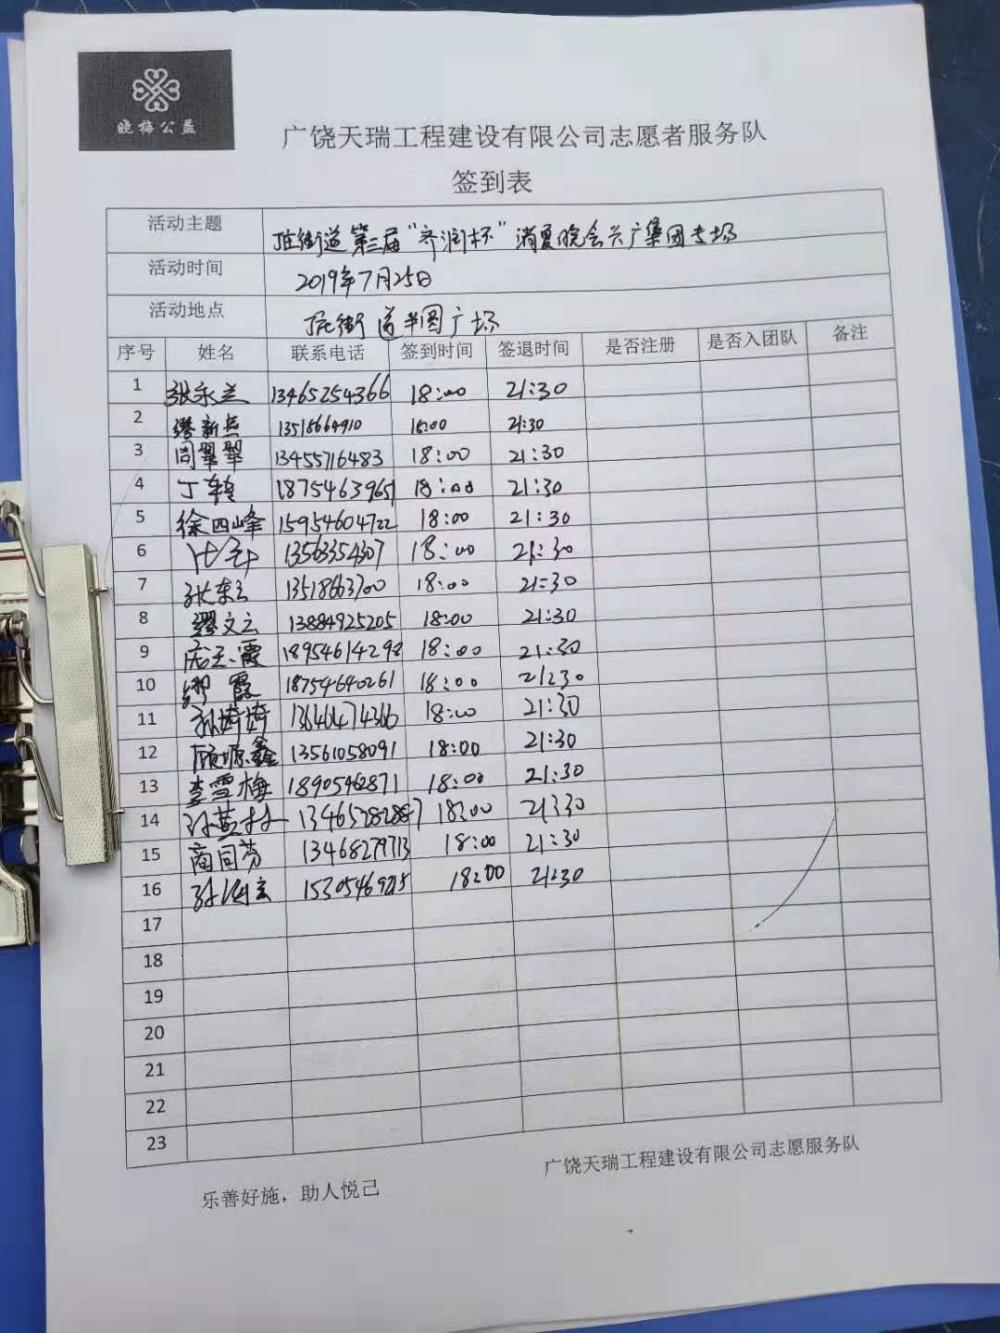 晓梅公益
广饶天瑞工程建设有限公司志愿者服务队
签到表
活动主题 街道第三届“齐润杯”消夏晚会兴广集团专场
活动时间 2019年7月25日
活动地点 街道半圆广场
序号 姓名 联系电话 签到时间 签退时间 是否注册 是否入团队 备注
1 张永兰 13465254366 18:00 21:30
2 缪新燕 13518664910 18:00 21:30
3 周翠翠 13455716483 18:00 21:30
4 丁 18754639651 18:00 21:30
5 徐四峰 15954604722 18:00 21:30
6 13563354307 18:00 21:30
7 张东 13518663700 18:00 21:30
8 缪文云 13884925205 18:00 21:30
9 庞玉霞 18954614298 18:00 21:30
10 霞 18754640261 18:00 21:30
11 孙琦琦 13646474366 18:00 21:30
12 顾源鑫 13561058091 18:00 21:30
13 李雪梅 18905462871 18:00 21:30
14 18:00 21:30
15 商同芬 13468279713 18:00 21:30
16 18:00 21:30
17
18
19
20
21
22
23
广饶天瑞工程建设有限公司志愿服务队
乐善好施，助人悦己